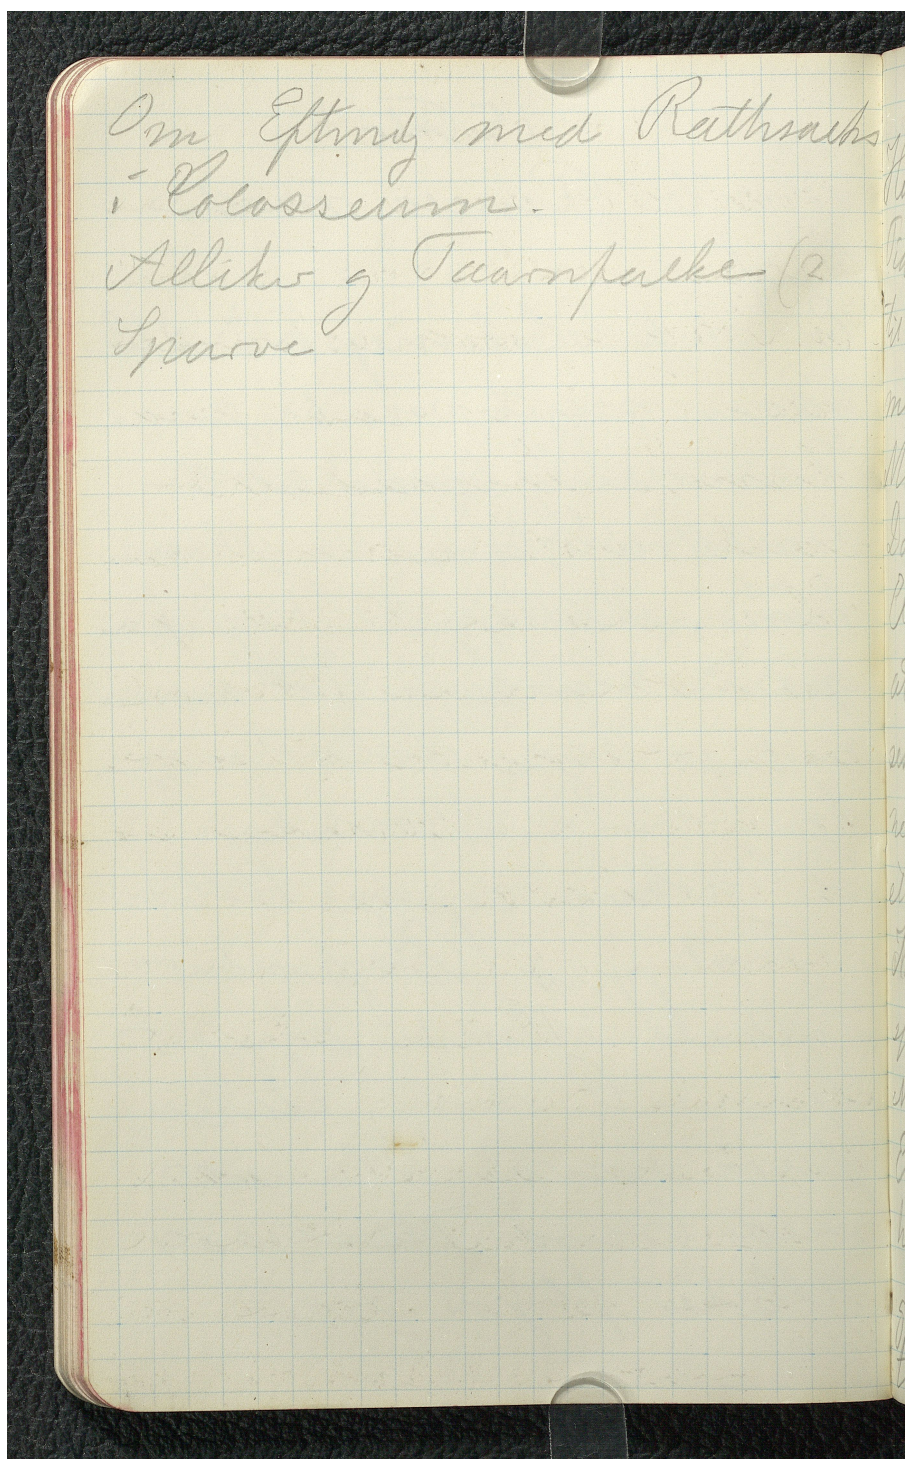 Om Eftmdg med Rathsacks
i Colosseum.
Alliker og Taarnfalke (2
Spurve